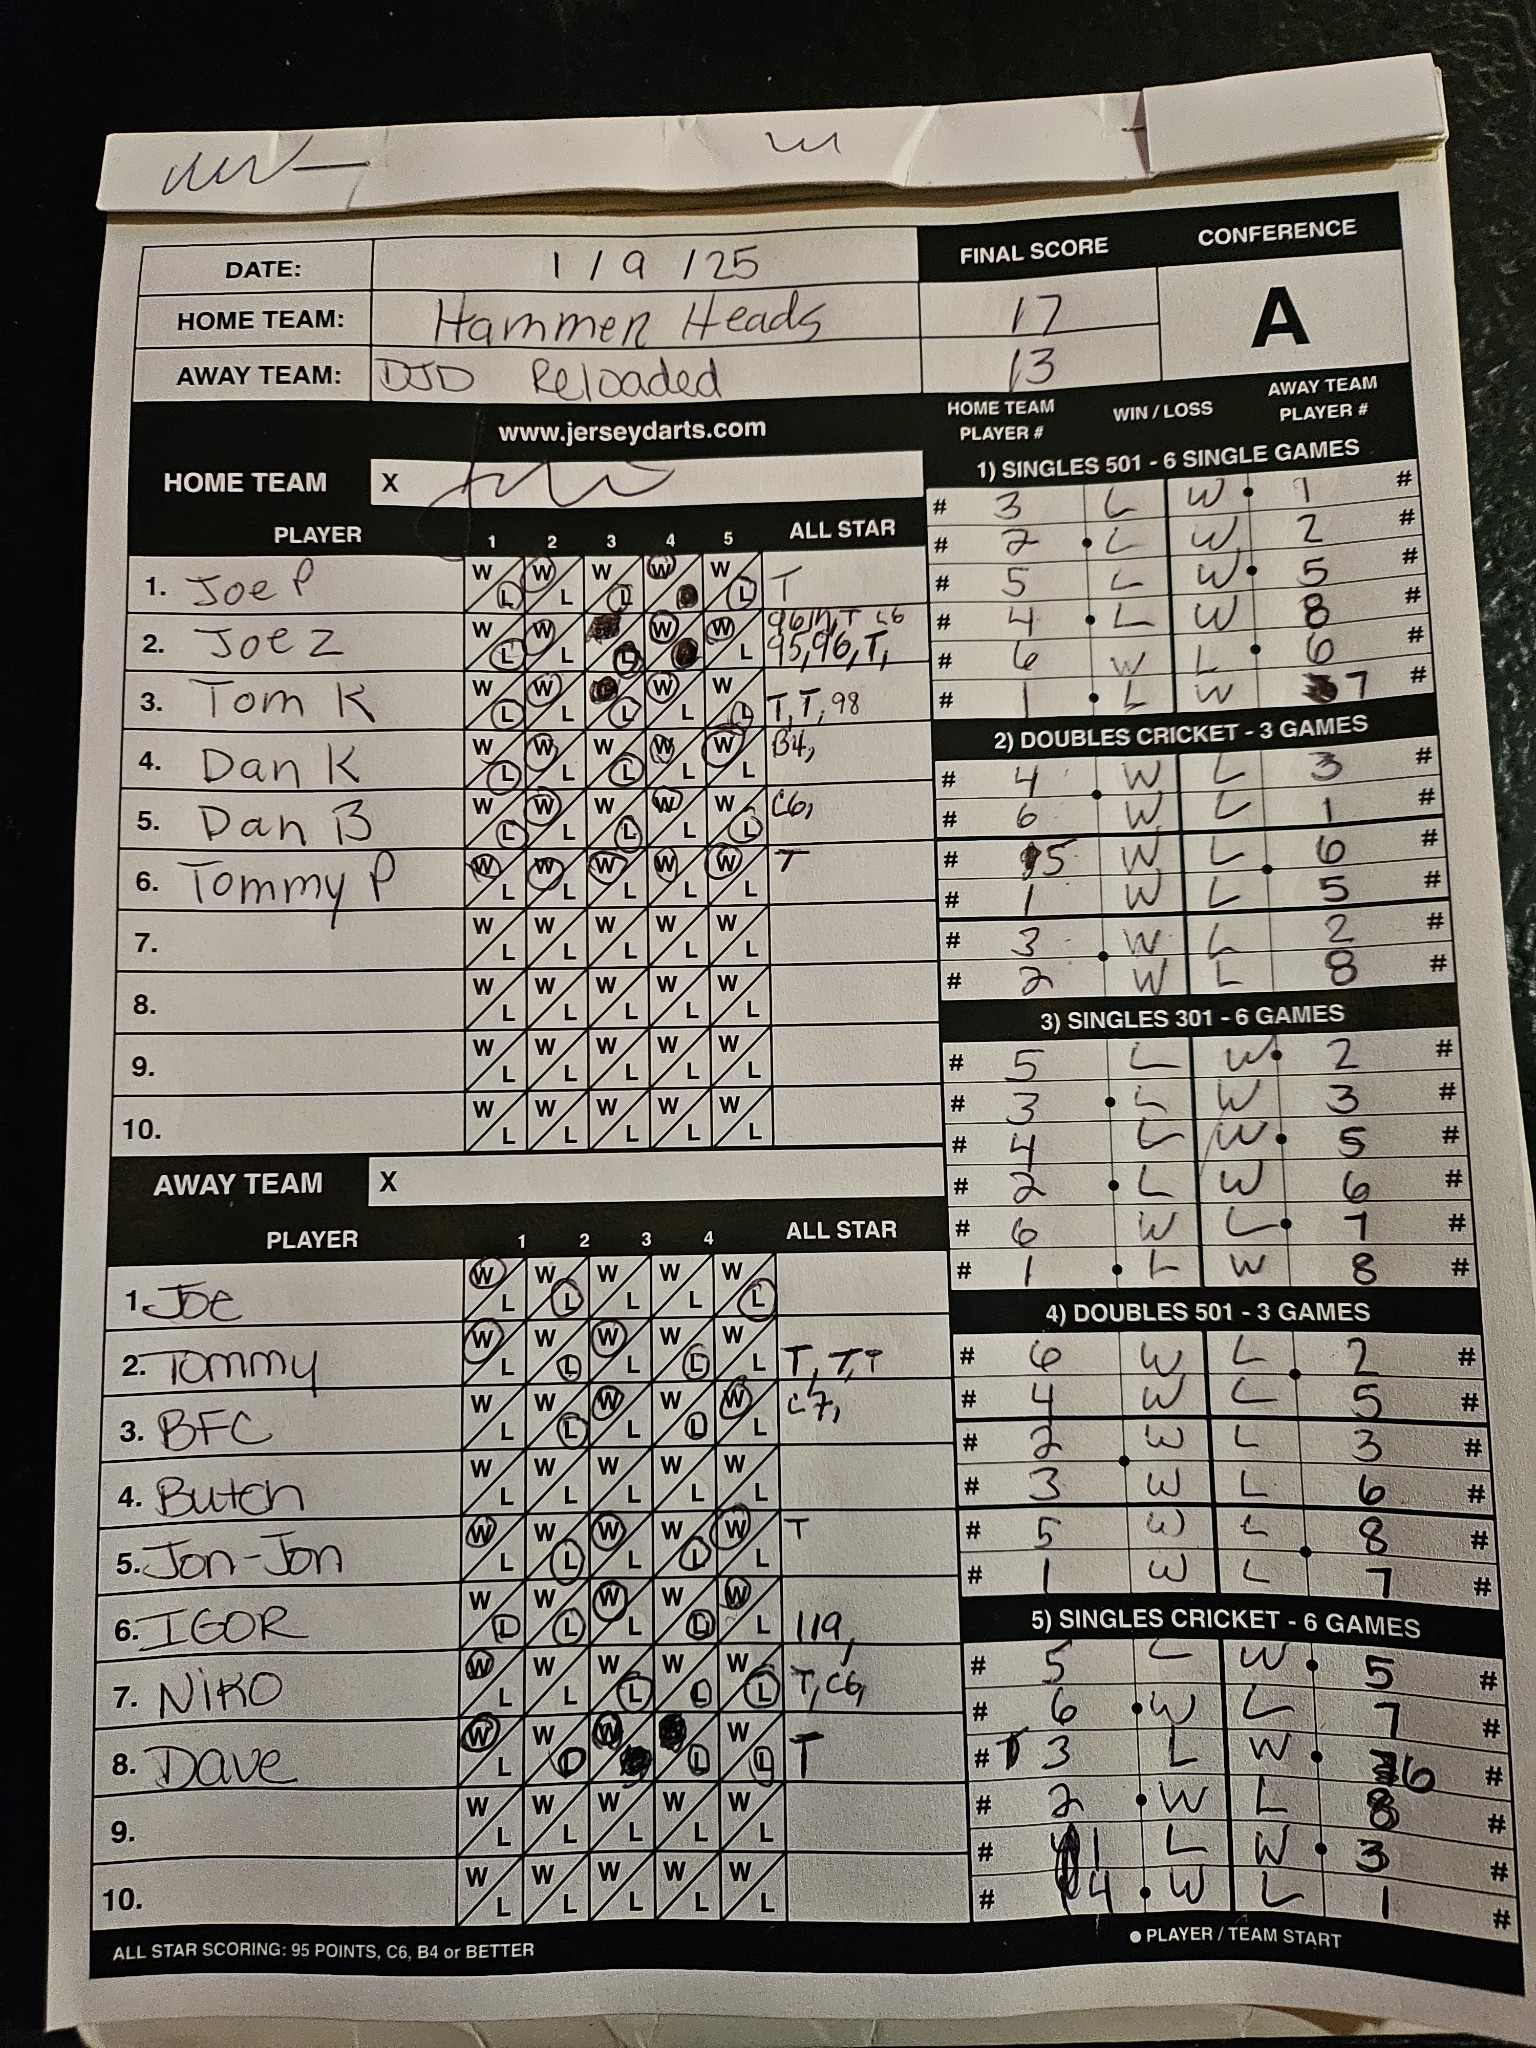 DATE: 1 / 9 / 25
FINAL SCORE
CONFERENCE
HOME TEAM: Hammer Heads 17
A
AWAY TEAM: DJD Reloaded 13
www.jerseydarts.com
HOME TEAM X
PLAYER 1 2 3 4 5 ALL STAR
1. Joe P W L W L W L W L W L T
2. Joe Z W L W L L W W L 95, 96, T,
3. Tom K W L W L L W L W L T, T, 98
4. Dan K W L W L W L W L W L B4,
5. Dan B W L W L W L W L W L C6,
6. Tommy P W L W L W L W L W L T
7. W L W L W L W L W L
8. W L W L W L W L W L
9. W L W L W L W L W L
10. W L W L W L W L W L
AWAY TEAM X
PLAYER 1 2 3 4 ALL STAR
1. Joe W L W L W L W L W L
2. Tommy W L W L W L W L W L T, T, T
3. BFC W L W L W L W L W L C7,
4. Butch W L W L W L W L W L
5. Jon-Jon W L W L W L W L W L T
6. IGOR W L W L W L W L W L 119,
7. NIKO W L W L W L W L W L T, C6,
8. Dave W L W L W L W L T
9. W L W L W L W L W L
10. W L W L W L W L W L
ALL STAR SCORING: 95 POINTS, C6, B4 or BETTER
HOME TEAM PLAYER # WIN / LOSS AWAY TEAM PLAYER #
1) SINGLES 501 - 6 SINGLE GAMES
# 3 L W 1 #
# 2 L W 2 #
# 5 L W 5 #
# 4 L W 8 #
# 6 W L 6 #
# 1 L W 7 #
2) DOUBLES CRICKET - 3 GAMES
# 4 W L 3 #
# 6 W L 1 #
# 5 W L 6 #
# 1 W L 5 #
# 3 W L 2 #
# 2 W L 8 #
3) SINGLES 301 - 6 GAMES
# 5 L W 2 #
# 3 L W 3 #
# 4 L W 5 #
# 2 L W 6 #
# 6 W L 7 #
# 1 L W 8 #
4) DOUBLES 501 - 3 GAMES
# 6 W L 2 #
# 4 W L 5 #
# 2 W L 3 #
# 3 W L 6 #
# 5 W L 8 #
# 1 W L 7 #
5) SINGLES CRICKET - 6 GAMES
# 5 L W 5 #
# 6 W L 7 #
# 3 L W 6 #
# 2 W L 8 #
# 1 L W 3 #
# 4 W L 1 #
PLAYER / TEAM START